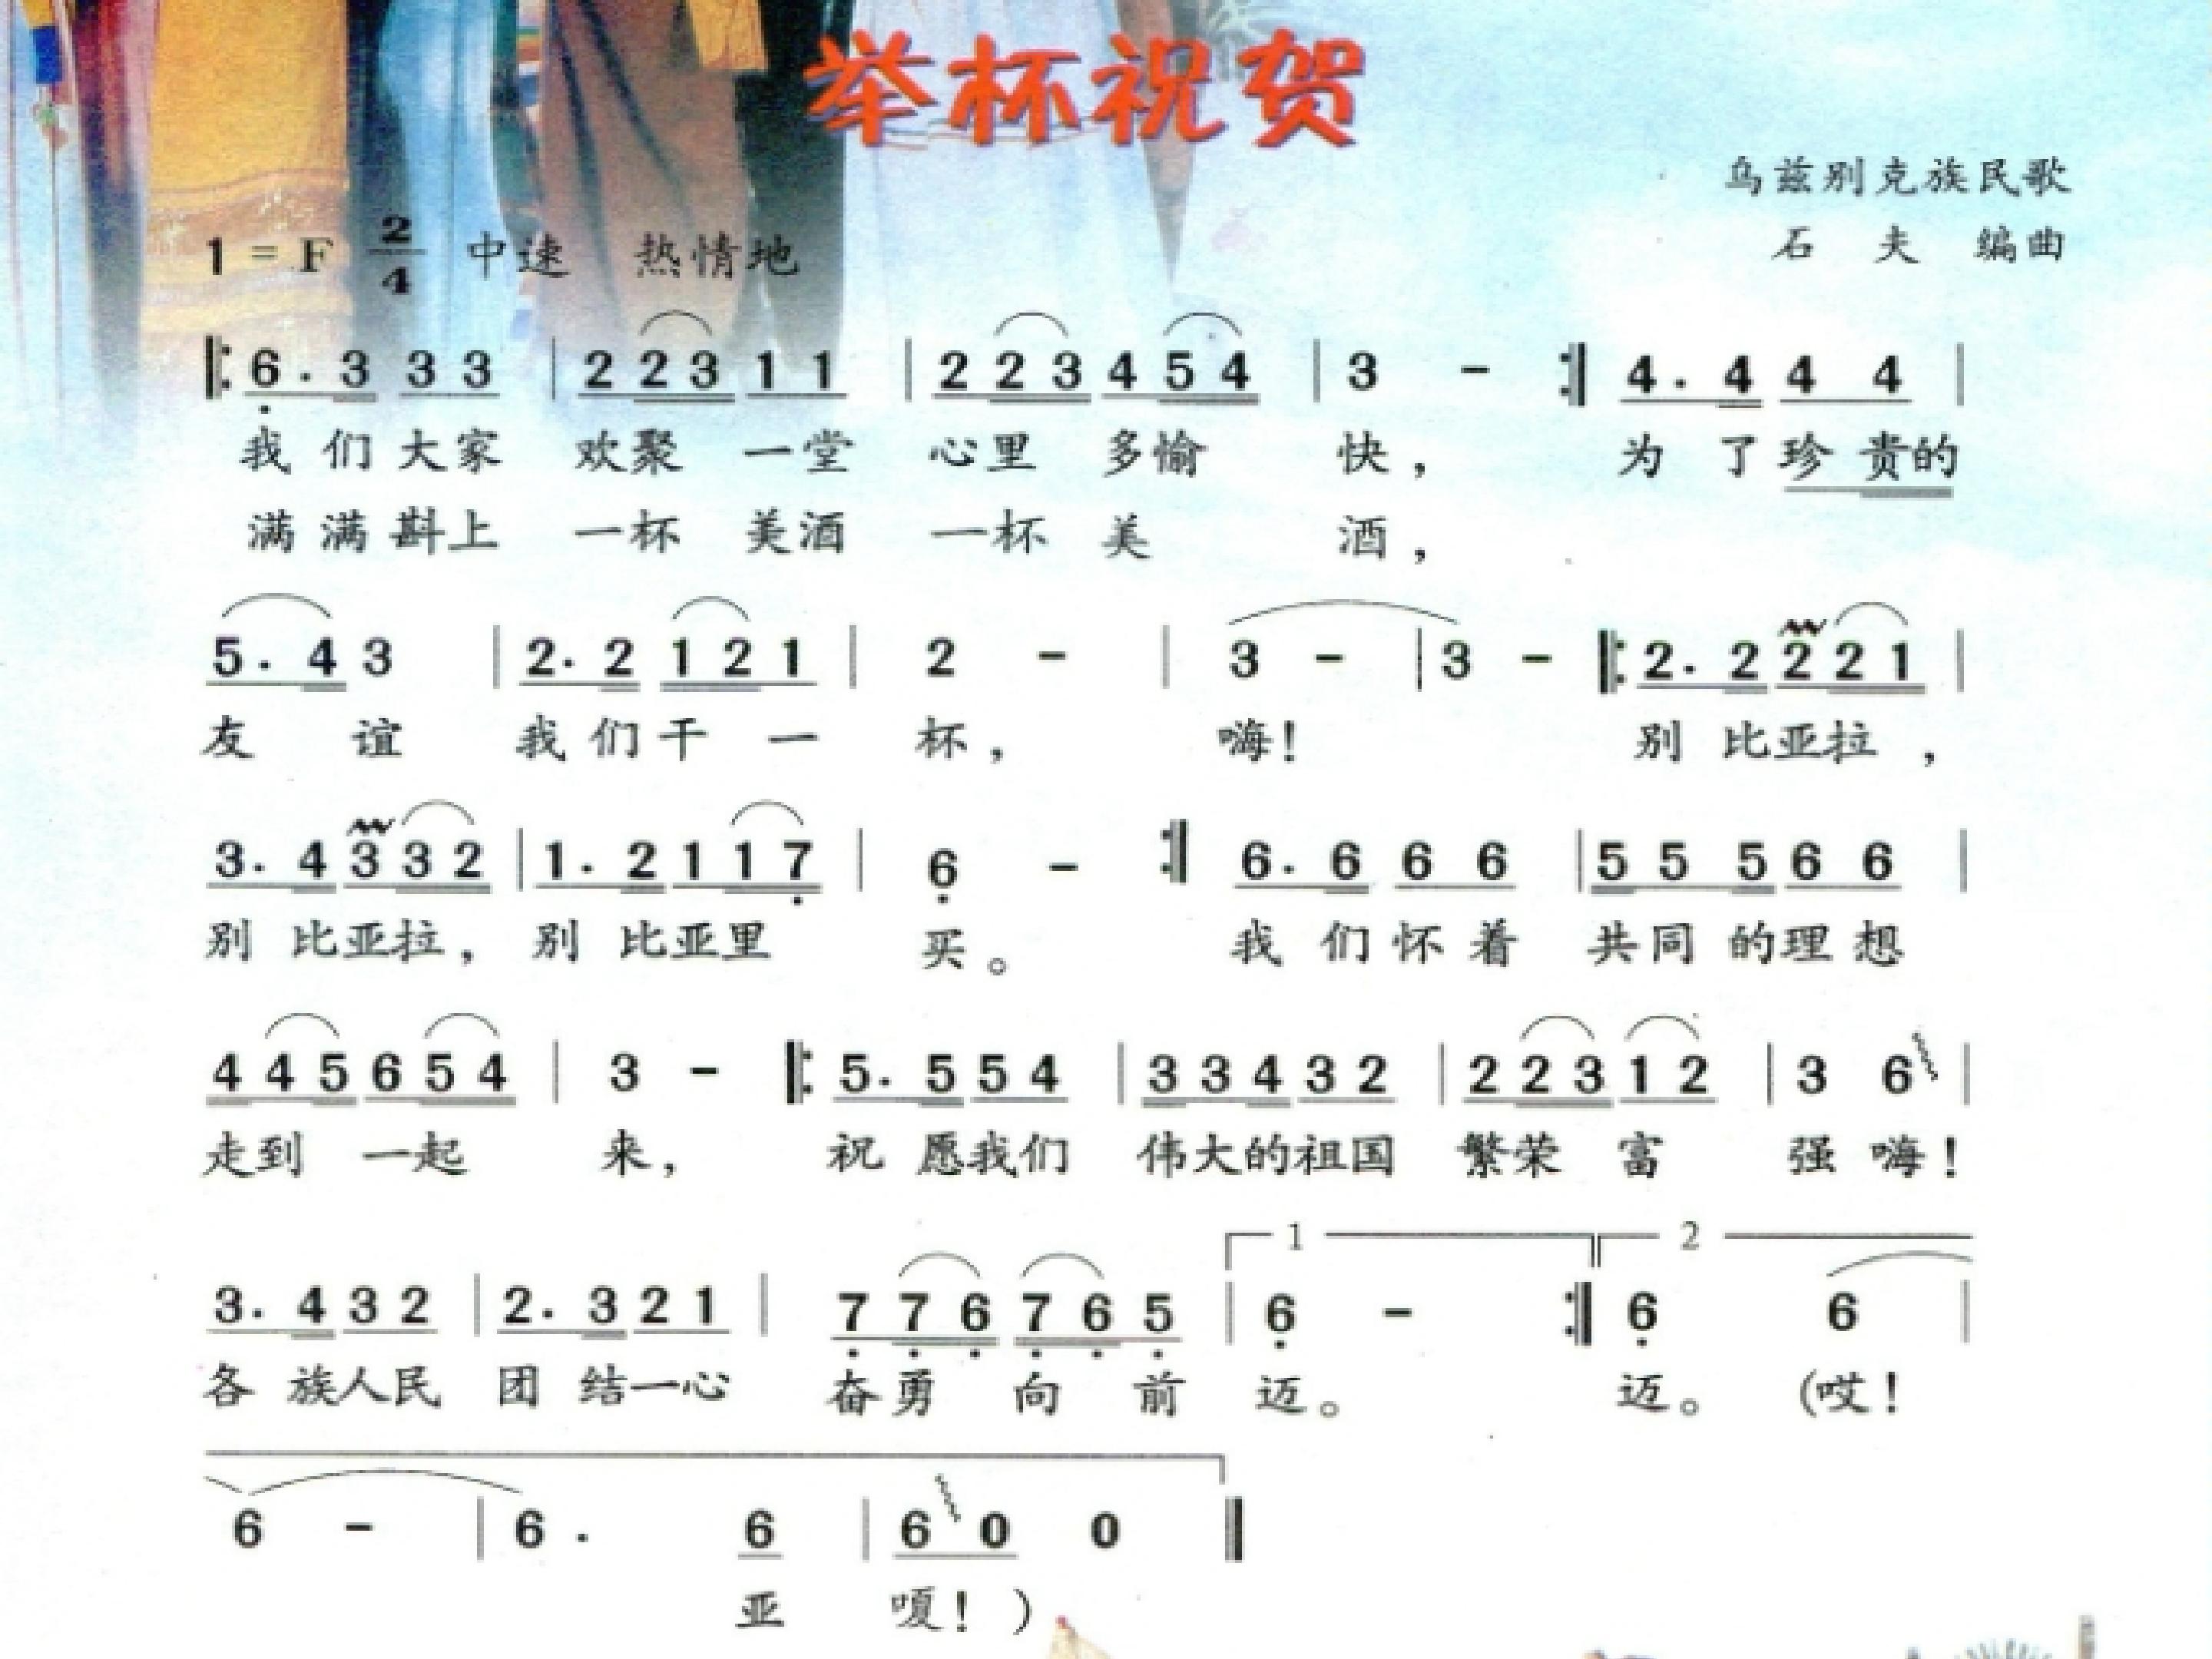 举杯祝贺
乌兹别克族民歌
1 = F 2/4 中速 热情地
石 夫 编曲
6 . 3 3 3 | 2 2 3 1 1 | 2 2 3 4 5 4 | 3 - :| 4 . 4 4 4 |
我 们 大 家 欢聚 一堂 心里 多愉 快， 为 了 珍 贵的
满 满 斟上 一杯 美酒 一杯 美 酒，
5 . 4 3 | 2 . 2 1 2 1 | 2 - | 3 - | 3 - |: 2 . 2 2 2 1 |
友 谊 我 们 干 一 杯， 嗨！ 别 比亚拉，
3 . 4 3 3 2 | 1 . 2 1 1 7 | 6 - :| 6 . 6 6 6 | 5 5 5 6 6 |
别 比亚拉， 别 比亚里 买。 我 们 怀 着 共同 的理 想
4 4 5 6 5 4 | 3 - |: 5 . 5 5 4 | 3 3 4 3 2 | 2 2 3 1 2 | 3 6 |
走到 一起 来， 祝 愿我们 伟大的祖国 繁荣 富 强 嗨！
1 2
3 . 4 3 2 | 2 . 3 2 1 | 7 7 6 7 6 5 | 6 - :| 6 6 |
各 族人民 团 结一心 奋勇 向 前 迈。 迈。 （哎！
6 - | 6 . 6 | 6 0 0
亚 嗄！）